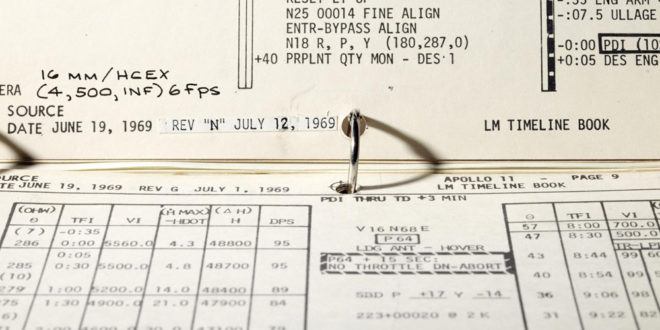 N25 00014 FINE ALIGN
ENTR-BYPASS ALIGN
N18 R, P, Y (180,287,0)
+40 PRPLNT QTY MON - DES 1
-:07.5 ULLAGE
-0:00 PDI (10
+0:05 DES ENG
16 MM/HCEX
ERA (4,500,INF) 6 FPS
SOURCE
DATE JUNE 19, 1969 REV "N" JULY 12, 1969
LM TIMELINE BOOK
URCE
TE JUNE 19, 1969 REV G JULY 1, 1969
APOLLO 11 - PAGE 9
LM TIMELINE BOOK
PDI THRU TD +3 MIN
(OHW) (H MAX) (Δ H)
Θ TFI VI -HDOT H DPS
(7) -0:35
286 0:00 5560.0 4.3 48800 95
0:05
285 0:30 5500.0 4.8 48700 95
(10)
279 1:00 5200.0 14.0 48400 89
275 1:30 4900.0 21.0 47900 84
V16 N68 E
P 64
LDG ANT - HOVER
P64 + 15 SEC:
NO THROTTLE DN-ABORT
SBD P +17 Y -14
223+00020 @ 2 K
Θ TFI VI
57 8:00 700.0
47 8:30 500.0
43 8:44 99
40 8:54 99
36 9:06 98
31 9:22 82